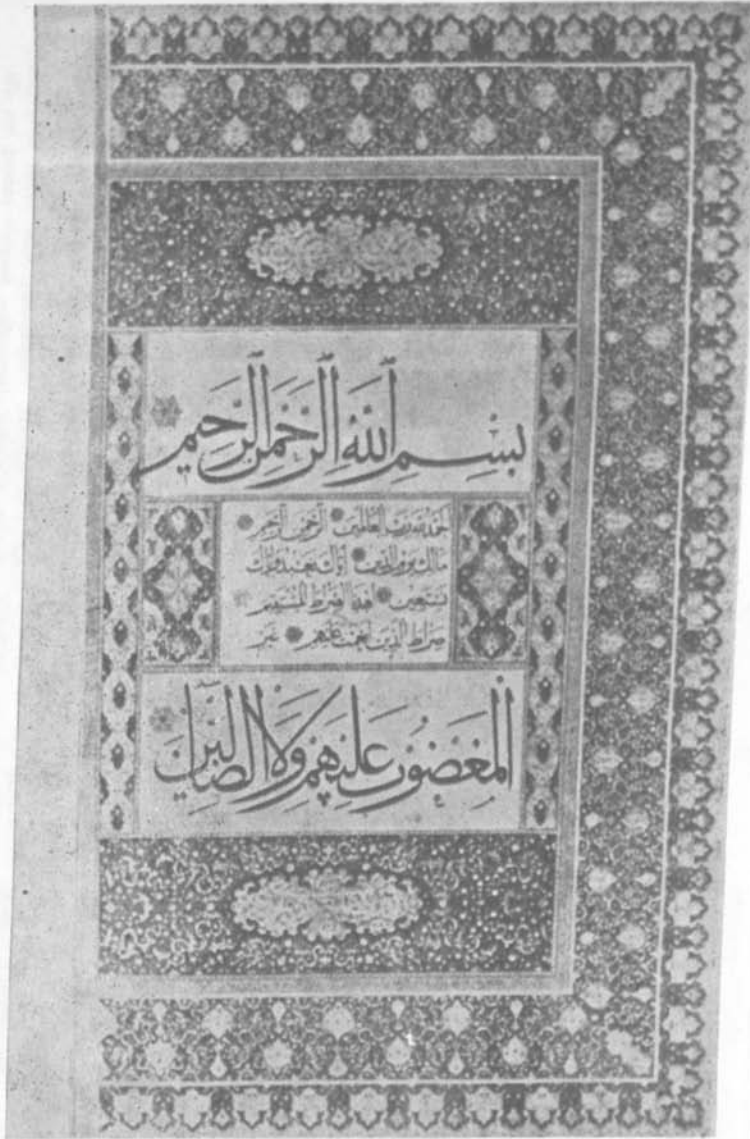 بِسْمِ اللَّهِ الرَّحْمَنِ الرَّحِيمِ
الحمد لله رب العالمين الرحمن الرحيم
مالك يوم الدين اياك نعبد واياك
نستعين اهدنا الصراط المستقيم
صراط الذين انعمت عليهم غير
المغضوب عليهم ولا الضالين